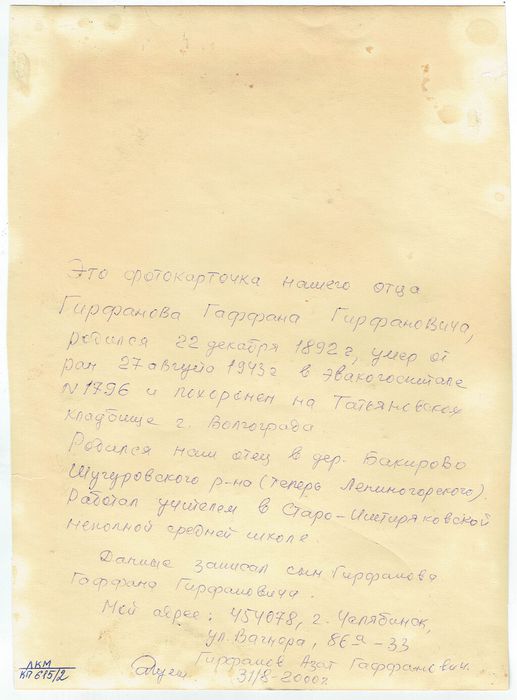 Это фотокарточка нашего отца
Гирфанова Гаффана Гирфановича,
родился 22 декабря 1892 г, умер от
ран 27 августа 1943 г в эвакогоспитале
N 1796 и похоронен на Татьяновском
кладбище г. Волгограда.
Родился наш отец в дер. Бакирово
Шугуровского р-на (теперь Лениногорского).
Работал учителем в Старо-Иштиряковской
неполной средней школе.
Данные записал сын Гирфанова
Гаффана Гирфановича.
Мой адрес: 454078, г. Челябинск,
ул. Вагнера, 86а-33
Гирфанов Азат Гаффанович.
31/8-2000г.
ЛКМ
КП 615/2